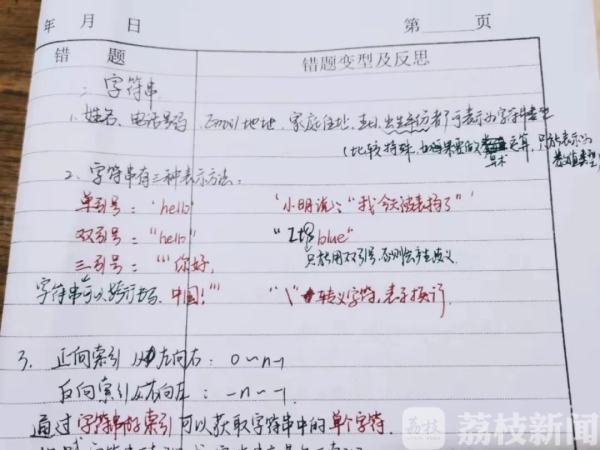 年 月 日 第 页
错 题 错题变型及反思
二、字符串
1. 姓名、电话号码、Email地址、家庭住址、出生年份都可表示为字符串类型
(比较特殊, 如果要做算术运算, 只能表示为数值类型)
2. 字符串有三种表示方法:
单引号: 'hello' '小明说:"我今天被表扬了"'
双引号: "hello" "It's blue"
只能用双引号,否则会产生歧义
三引号: '''你好,
字符串可以跨行书写 中国!''' "\"转义字符,表示换行.
3. 正向索引 从左向右: 0~n-1
反向索引 从右向左: -n~-1
通过字符串的索引可以获取字符串中的单个字符.
荔枝 荔枝新闻